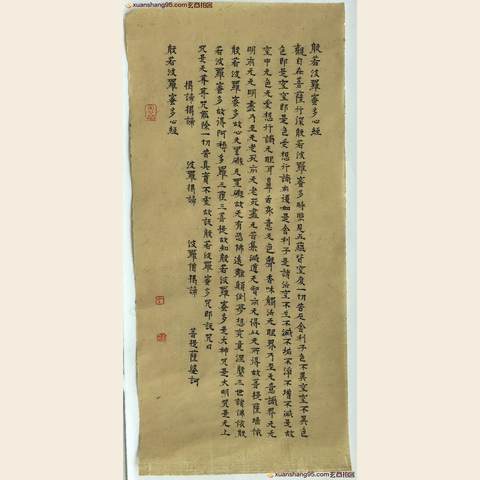 xuanshang95.com玄酉拍卖
般若波羅蜜多心經
觀自在菩薩行深般若波羅蜜多時照見五蘊皆空度一切苦厄舍利子色不異空空不異色
色即是空空即是色受想行識亦復如是舍利子是諸法空不生不滅不垢不淨不增不減是故
空中无色无受想行識无眼耳鼻舌身意无色聲香味觸法无眼界乃至无意識界无无
明亦无无明盡乃至无老死亦无老死盡无苦集滅道无智亦无得以无所得故菩提薩埵依
般若波羅蜜多故心无罣礙无罣礙故无有恐怖遠離顛倒夢想究竟涅槃三世諸佛依般
若波羅蜜多故得阿耨多羅三藐三菩提故知般若波羅蜜多是大神咒是大明咒是无上
咒是无等等咒能除一切苦真實不虛故說般若波羅蜜多咒即說咒曰
揭諦揭諦 波羅揭諦 波羅僧揭諦 菩提薩婆訶
般若波羅蜜多心經
xuanshang95.com玄酉拍卖